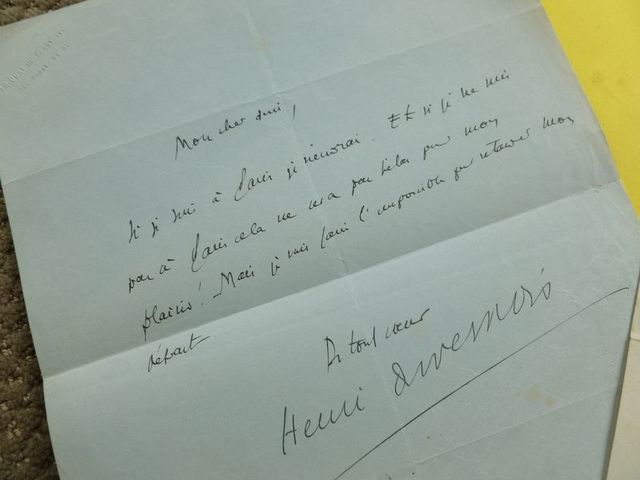 Mon cher ami,
Si je suis à Paris je viendrai. Et si je ne suis
pas à Paris cela ne sera pas hélas pour mon
plaisir! Mais je vais faire l'impossible pour retarder mon
départ
De tout cœur
Henri Duvernois